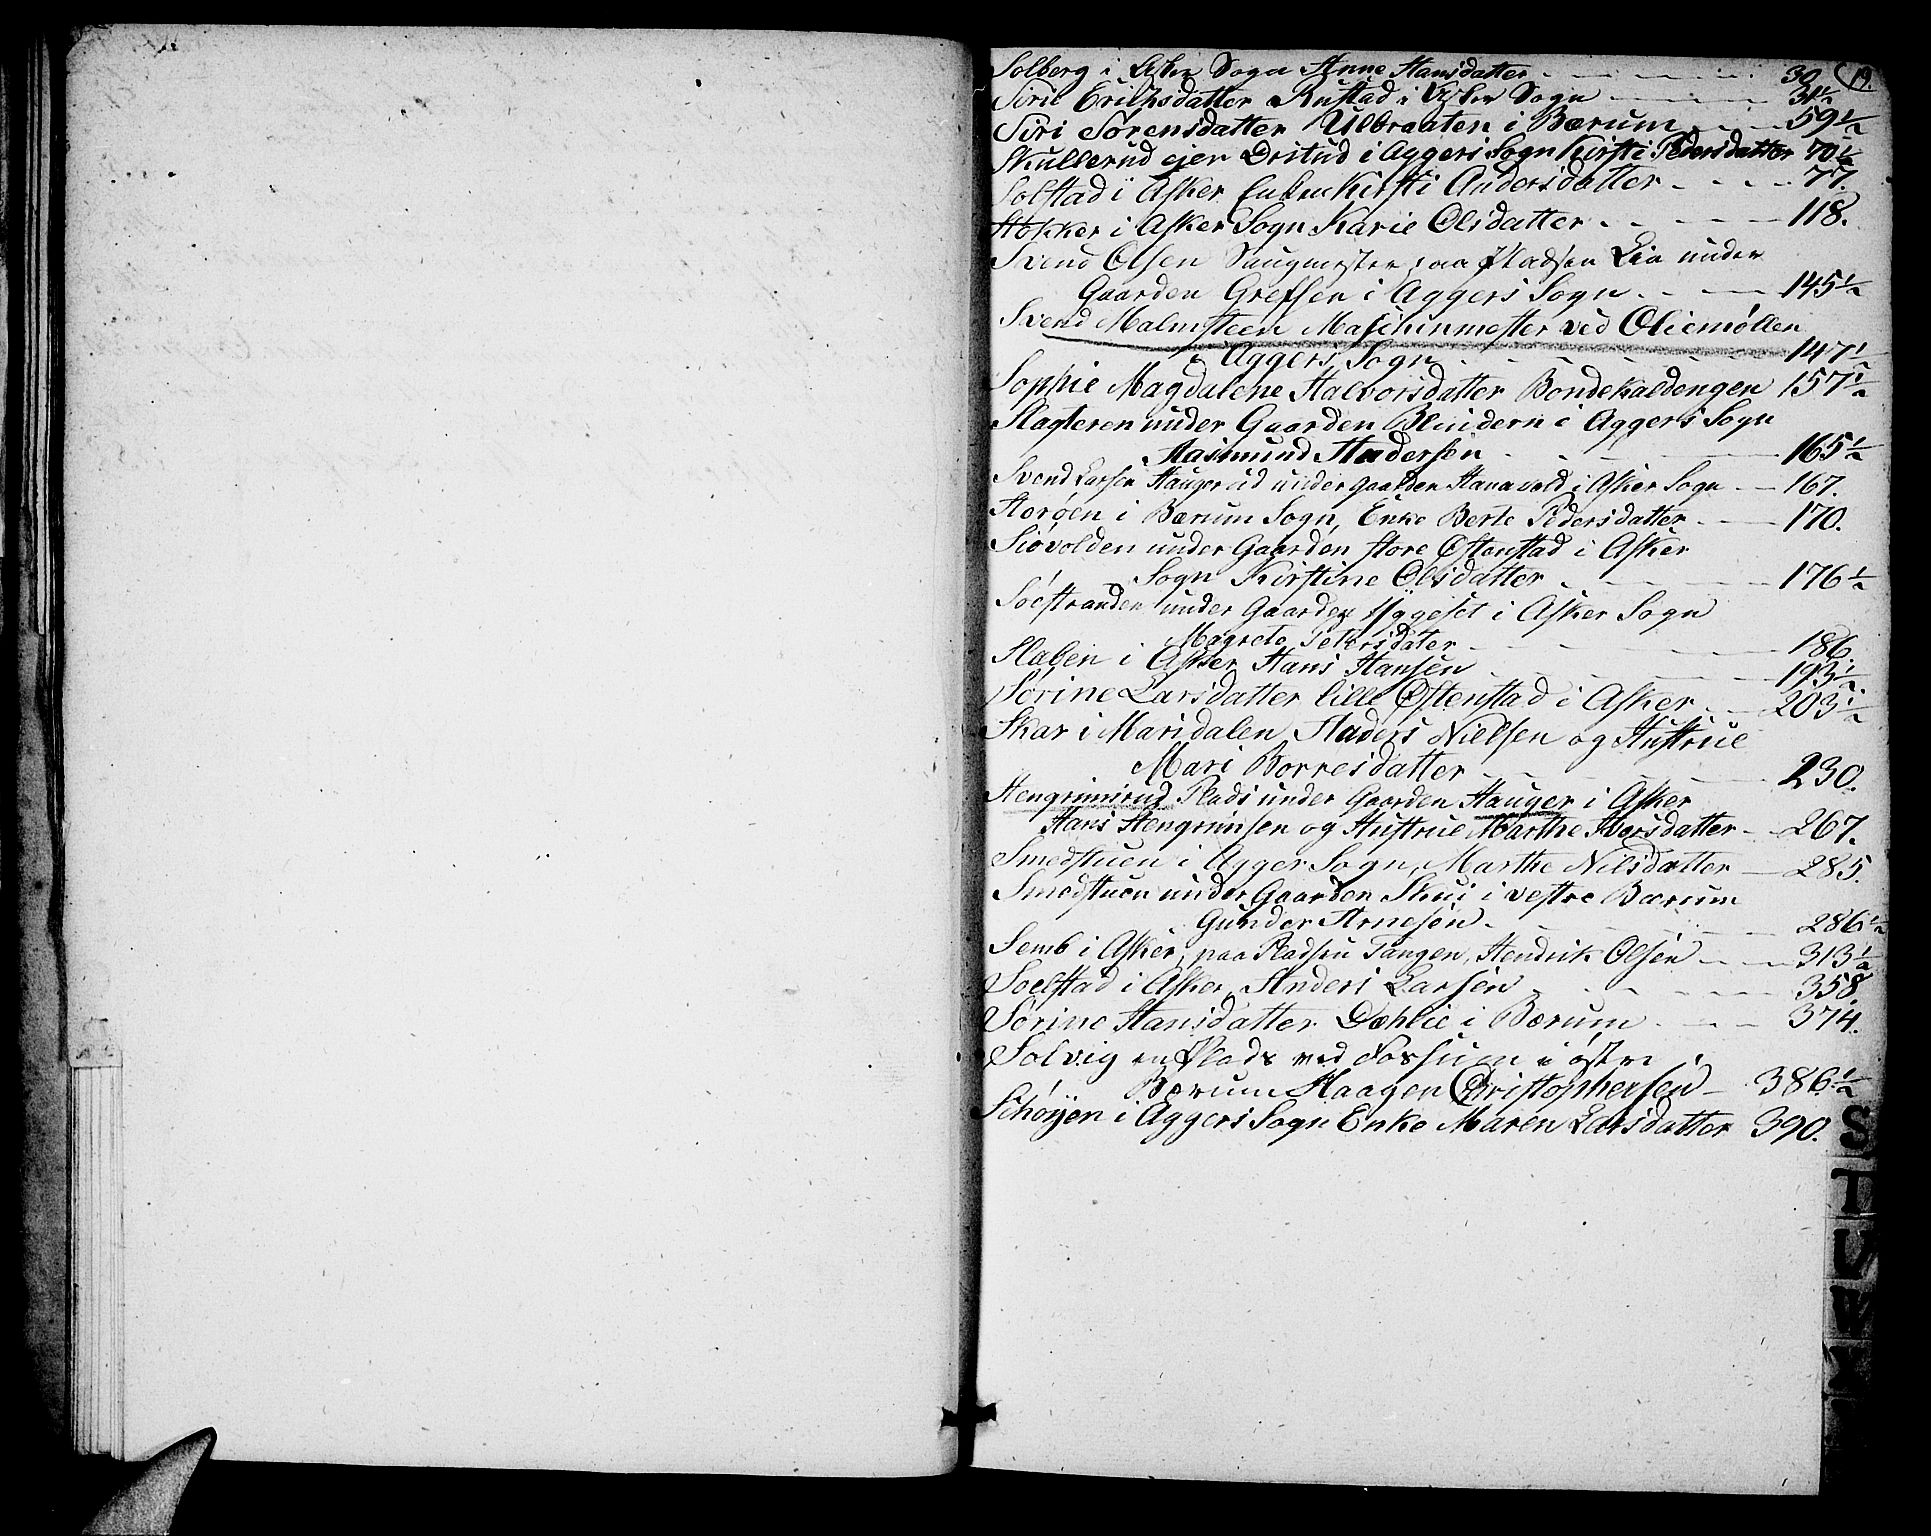 Solberg i Asker Sogn Anne Hansdatter - - - 30 19.
Siri Erichsdatter Rustad i Asker Sogn - - - 31½
Siri Sørensdatter Ulbraaten i Bærum - - - 59½
Skullerud ejer Dristud i Aggers Sogn Kirsti Pedersdatter 70½
Solstad i Asker Enken Kirsti Andersdatter - - - 77.
Støkker i Asker Sogn Karie Olsdatter - - - 118.
Svend Olsen Saugmester paa Pladsen Lia under
Gaarden Grefsen i Aggers Sogn - - - 145½
Svend Malmsteen Maschinmester ved Oliemøllen
i Aggers Sogn - - - 147½
Sophie Magdalene Halvorsdatter Bondekaldengen 157½
Slagteren under Gaarden Blindern i Aggers Sogn
Rasmund Andersen - - - 165½
Svend Larsen Haugerud under Gaarden Hanevold i Asker Sogn - - 167.
Storøen i Bærum Sogn, Enke Berte Pedersdatter - - - 170.
Siøvolden under Gaarden store Østenstad i Asker
Sogn Kirstine Olsdatter - - - 176½
Søestranden under Gaarden Hyggeset i Asker Sogn
Magrete Petersdater - - - 186.
Staben i Asker Hans Hansen - - - 193½
Sørine Larsdatter lille Østenstad i Asker - - 203½
Skar i Maridalen Anders Nielsen og Hustrue
Mari Borresdatter - - - 230.
Stengrimsrud Plads under Gaarden Hauger i Asker
Hans Stengrimsen og Hustrue Marthe Iversdatter - - 267.
Smedstuen i Agger Sogn, Marthe Nilsdatter - 285.
Smedstuen under Gaarden Skui i vestre Bærum
Gunder Arnesen - - - 286½
Semb i Asker, paa Pladsen Tangen, Hendrik Olsen - - - 313½
Soelstad i Asker, Anders Larsen - - - 358
Sørine Hansdatter Dæhlie i Bærum - - - 374.
Solvig en Plads ved Fossum i østre
Bærum Haagen Christophersen - 386½
Schøyen i Aggers Sogn Enke Maren Larsdatter 390.
S
T
U
W